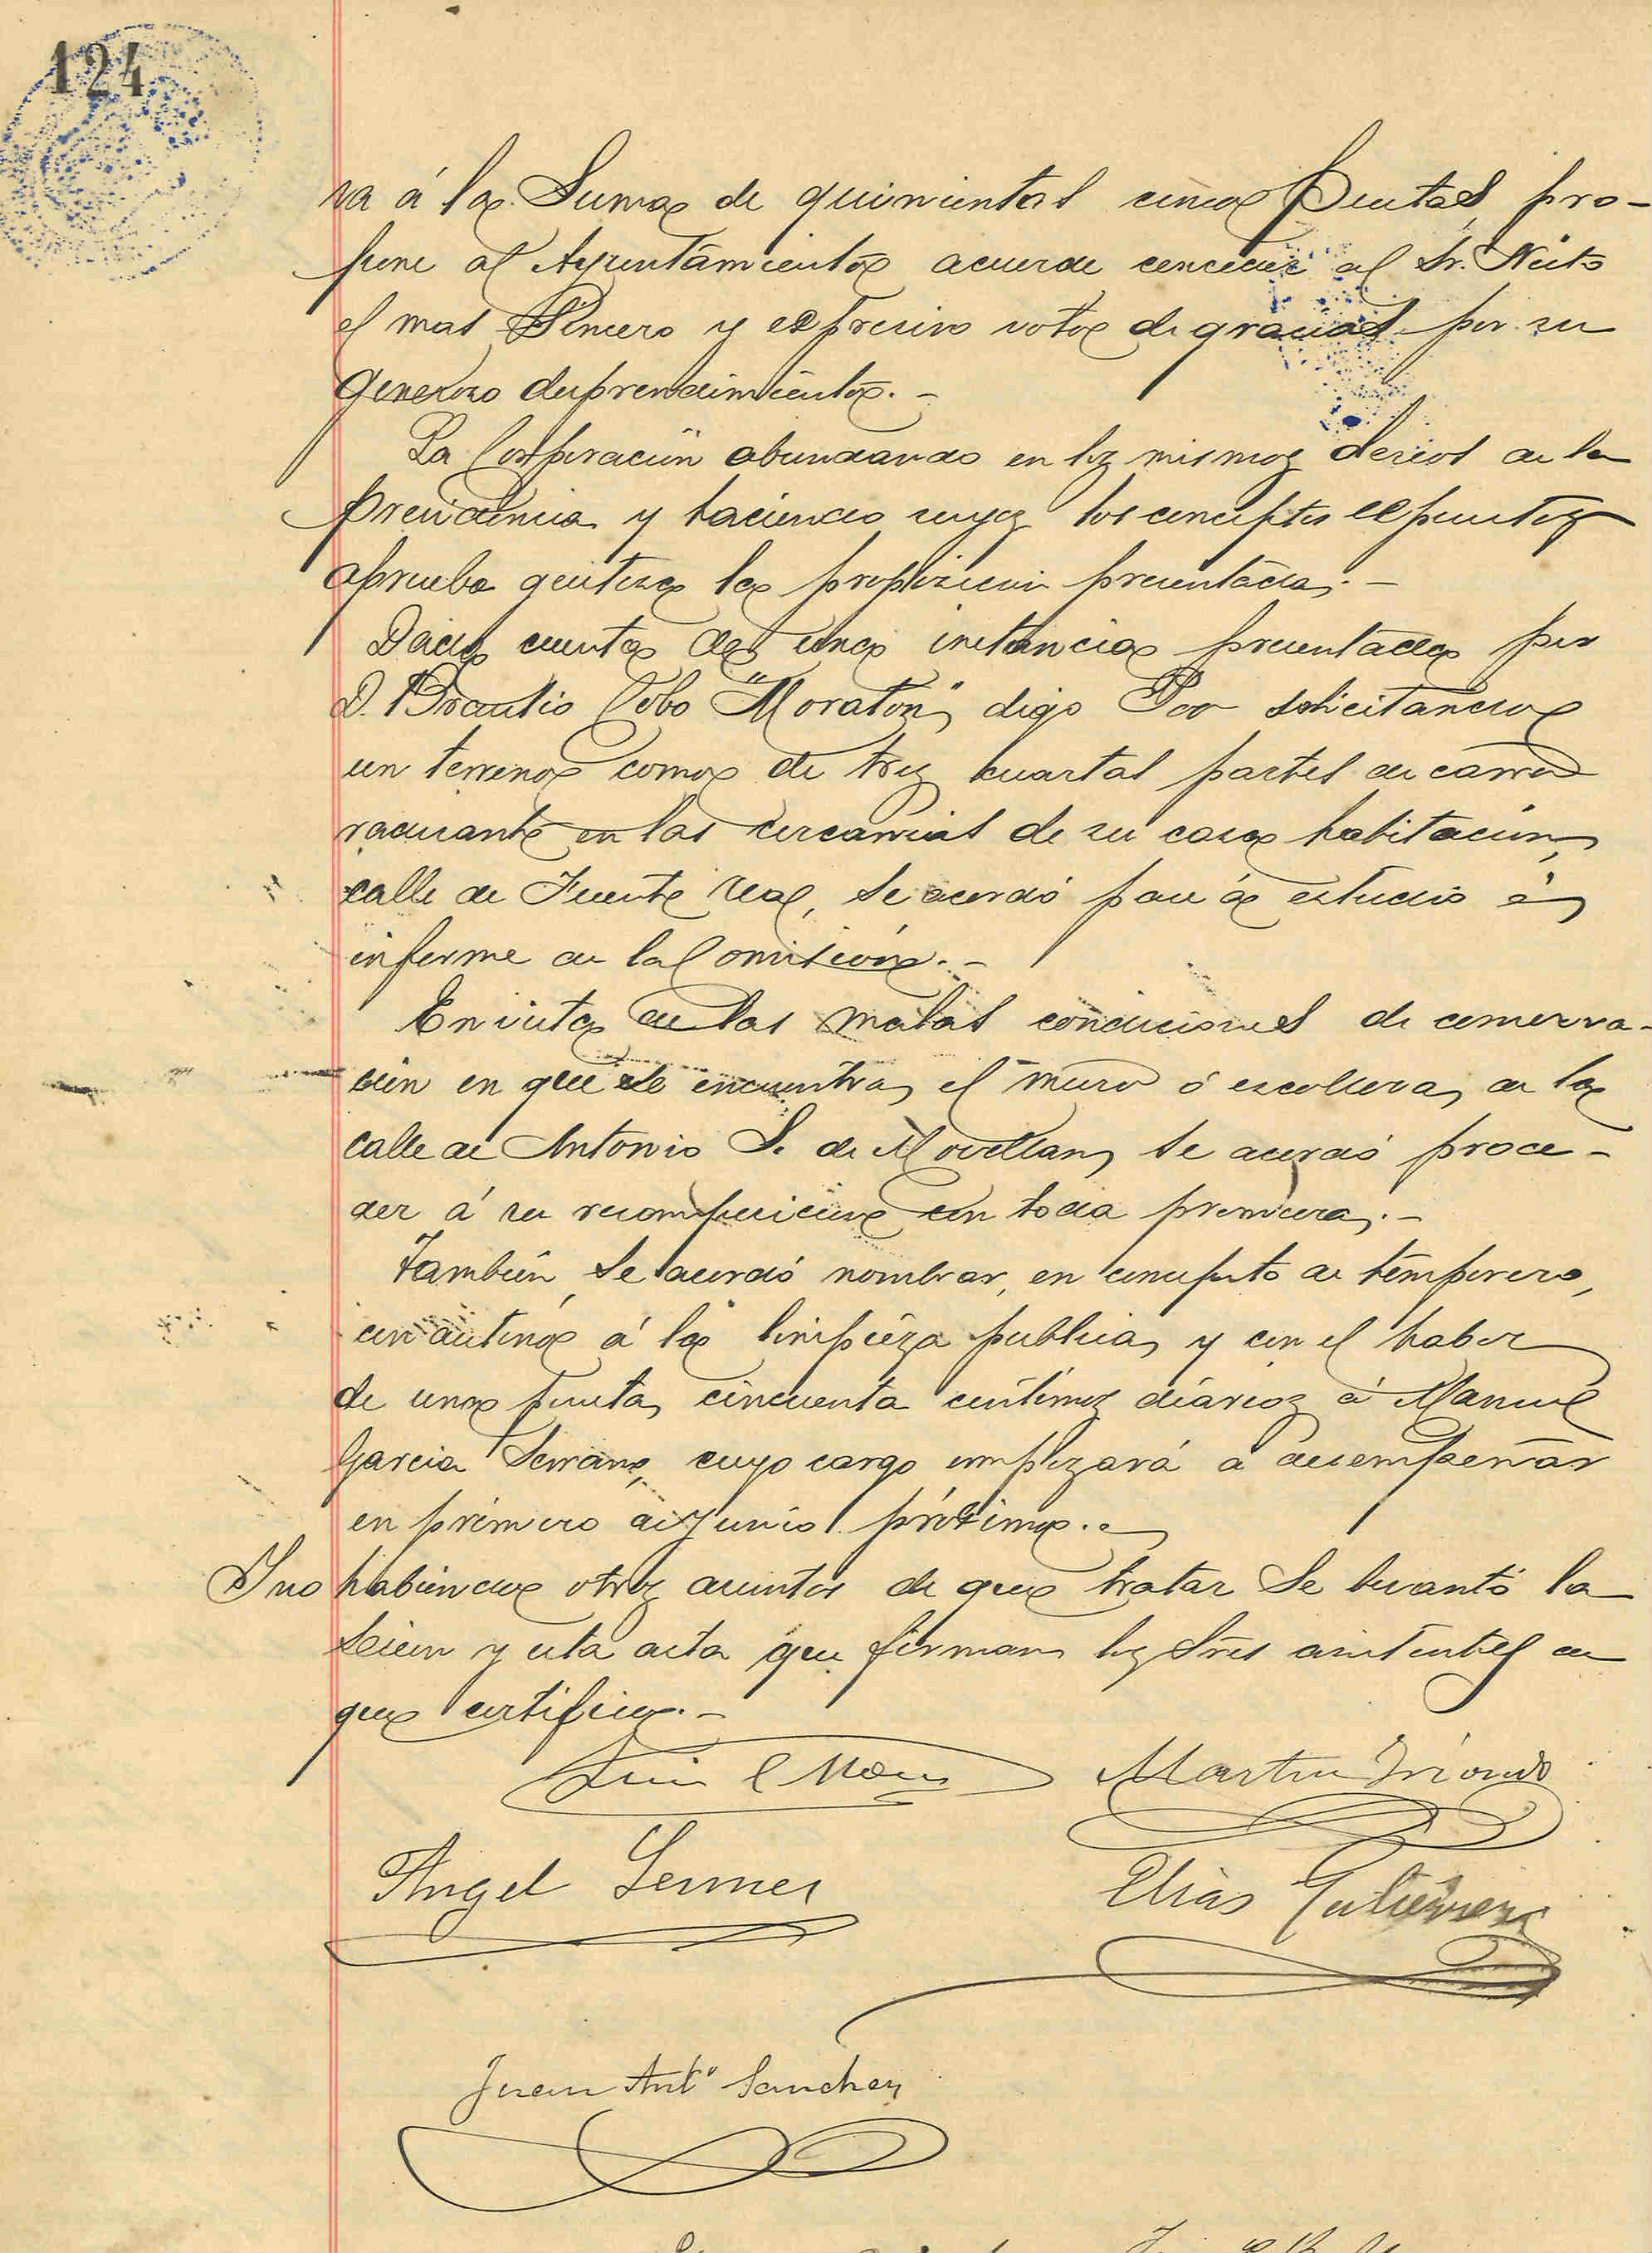 124
va á la Suma de quinientas cinco Pesetas, pro-
pone al Ayuntamiento acuerde conceder al Sr. Nieto
el mas Sincero y expresivo voto de gracias por su
generoso desprendimiento.-
La Corporación abundando en los mismos deseos de la
presidencia y haciendo suyos los conceptos expuestos
aprueba gustosa la proposición presentada.-
Dada cuenta de una instancia presentada por
D. Braulio Cobo "Moratón", digo Poo solicitando
un terreno como de tres cuartas partes de carro
radicante en las cercanias de su casa habitación,
calle de Fuente Real, se acordó pase á estudio é
informe de la Comisión.-
En vista de las malas condiciones de conserva-
ción en que se encuentra el muro ó escollera de la
calle de Antonio S. de Movellan, se acordó proce-
der á su recomposición con toda premura.-
También se acordó nombrar, en concepto de temporero,
con destino á la limpieza publica y con el haber
de una peseta cincuenta céntimos diarios á Manuel
Garcia Serrano, cuyo cargo empezará á desempeñar
en primero de Junio próximo.-
Y no habiendo otros asuntos de que tratar Se levantó la
Sesion y esta acta que firman los Sres asistentes de
que certifico.-
Luis
Martin Iriondo
Angel
Elias Gutierrez
Juan Antº Sanchez